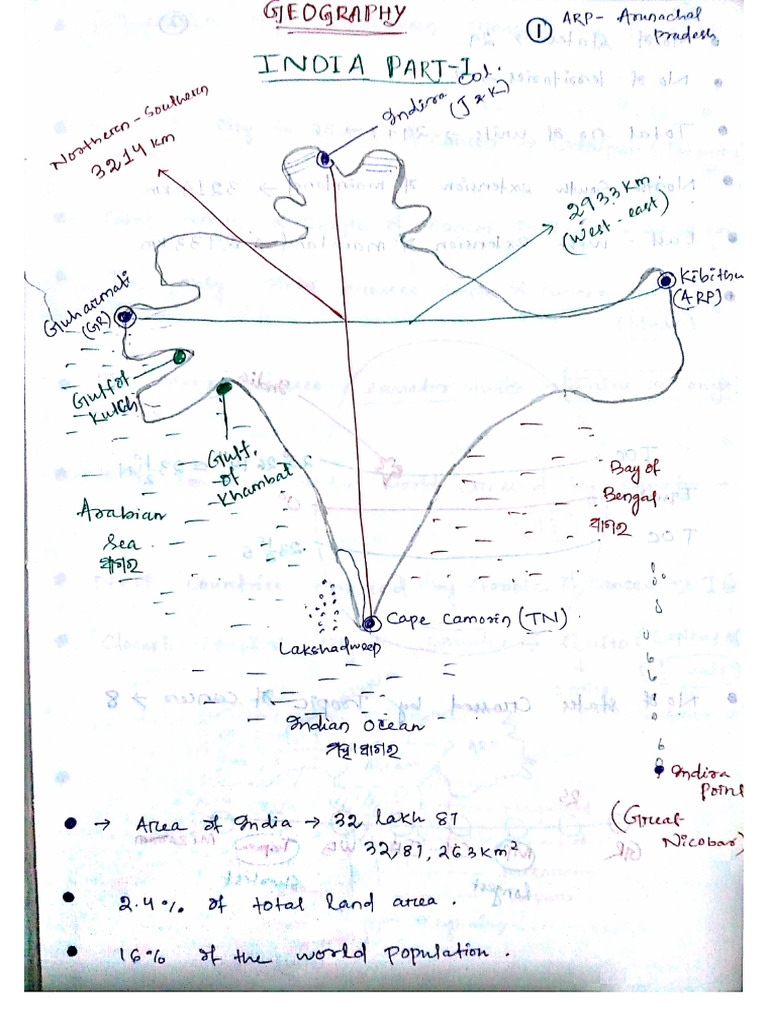 GEOGRAPHY
1
ARP- Arunachal
Pradesh
INDIA PART-I
Indira Col.
(J&K)
Northern-Southern
3214 km
2933 km.
(West-east)
Kibithu
(ARP)
Guharmati
(GR)
Gulf of
Kutch
Gulf.
of
Khambat
Arabian
Sea
ସାଗର
Bay of
Bengal
ସାଗର
Cape Camorin (TN)
Lakshadweep
Indian Ocean
ମହାସାଗର
Indira
Point
(Great
Nicobar)
→ Area of India → 32 lakh 87
32,87,263 km²
2.4% of total land area.
16% of the world population.